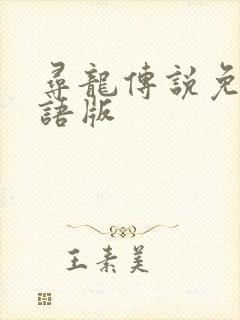 尋龍傳説免
語版
王素美